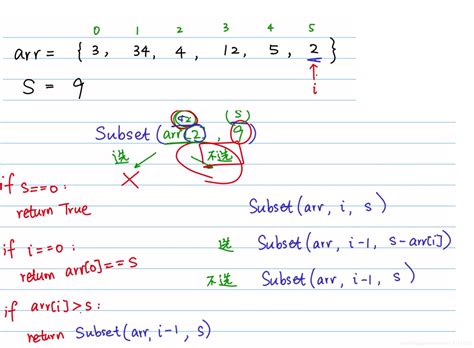 0 1 2 3 4 5
arr = { 3, 34, 4, 12, 5, 2 }
S = 9
i
(S)
Subset(arr[2], 9)
选 不选
if s==0:
return True
Subset(arr, i, s)
if i==0:
return arr[0]==s
选 Subset(arr, i-1, s-arr[i])
不选 Subset(arr, i-1, s)
if arr[i]>s:
return Subset(arr, i-1, s)